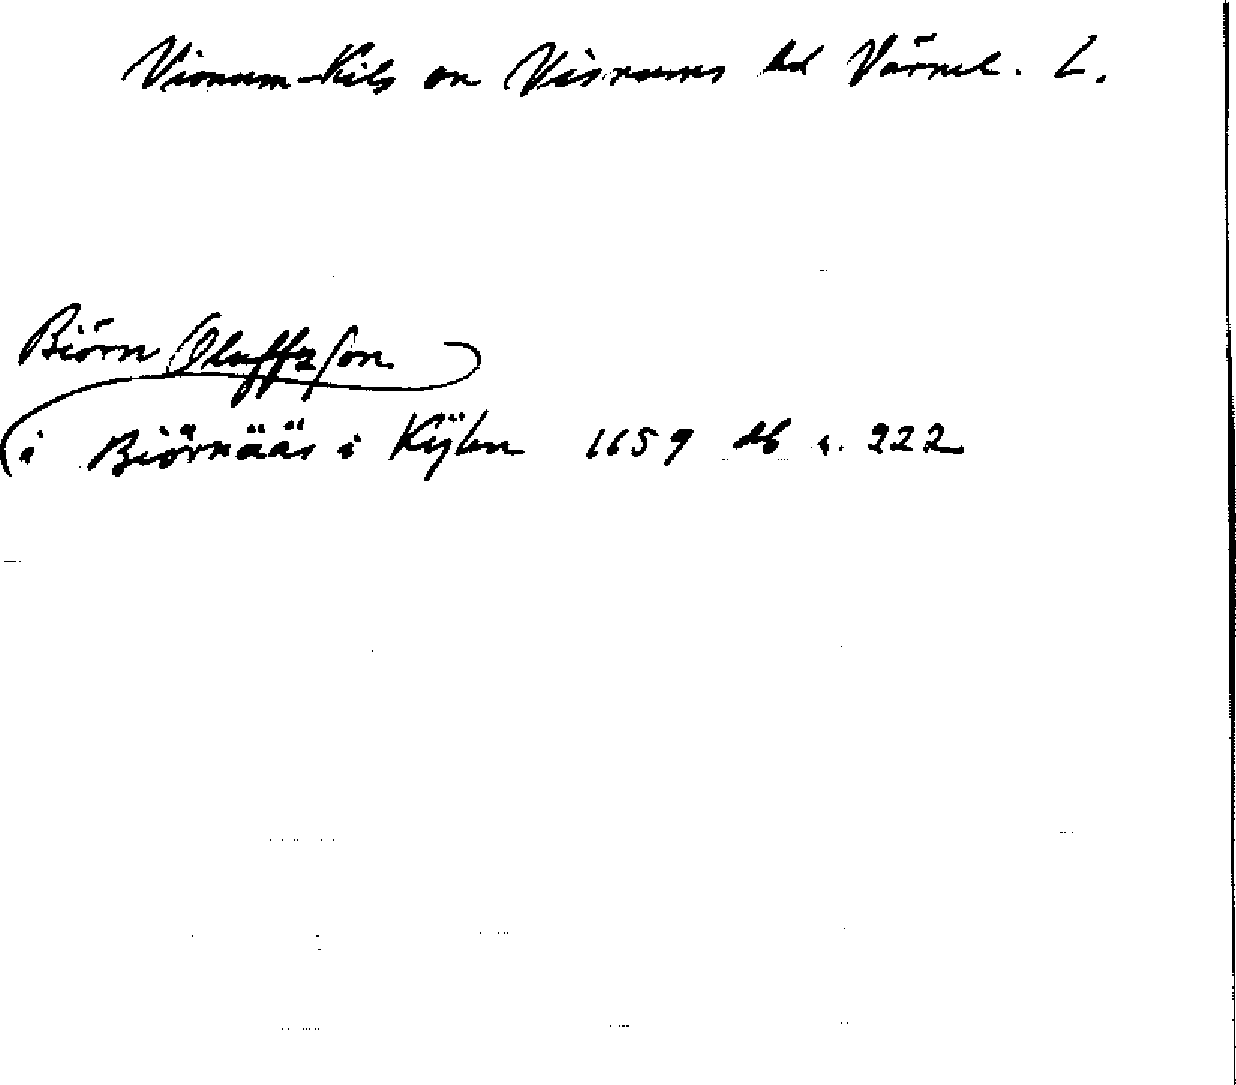 Visnum-Kils sn Visnums hd Värml. L.
Biörn Oluffzson
i Biörnääs i Kÿlen 1659 db s. 222